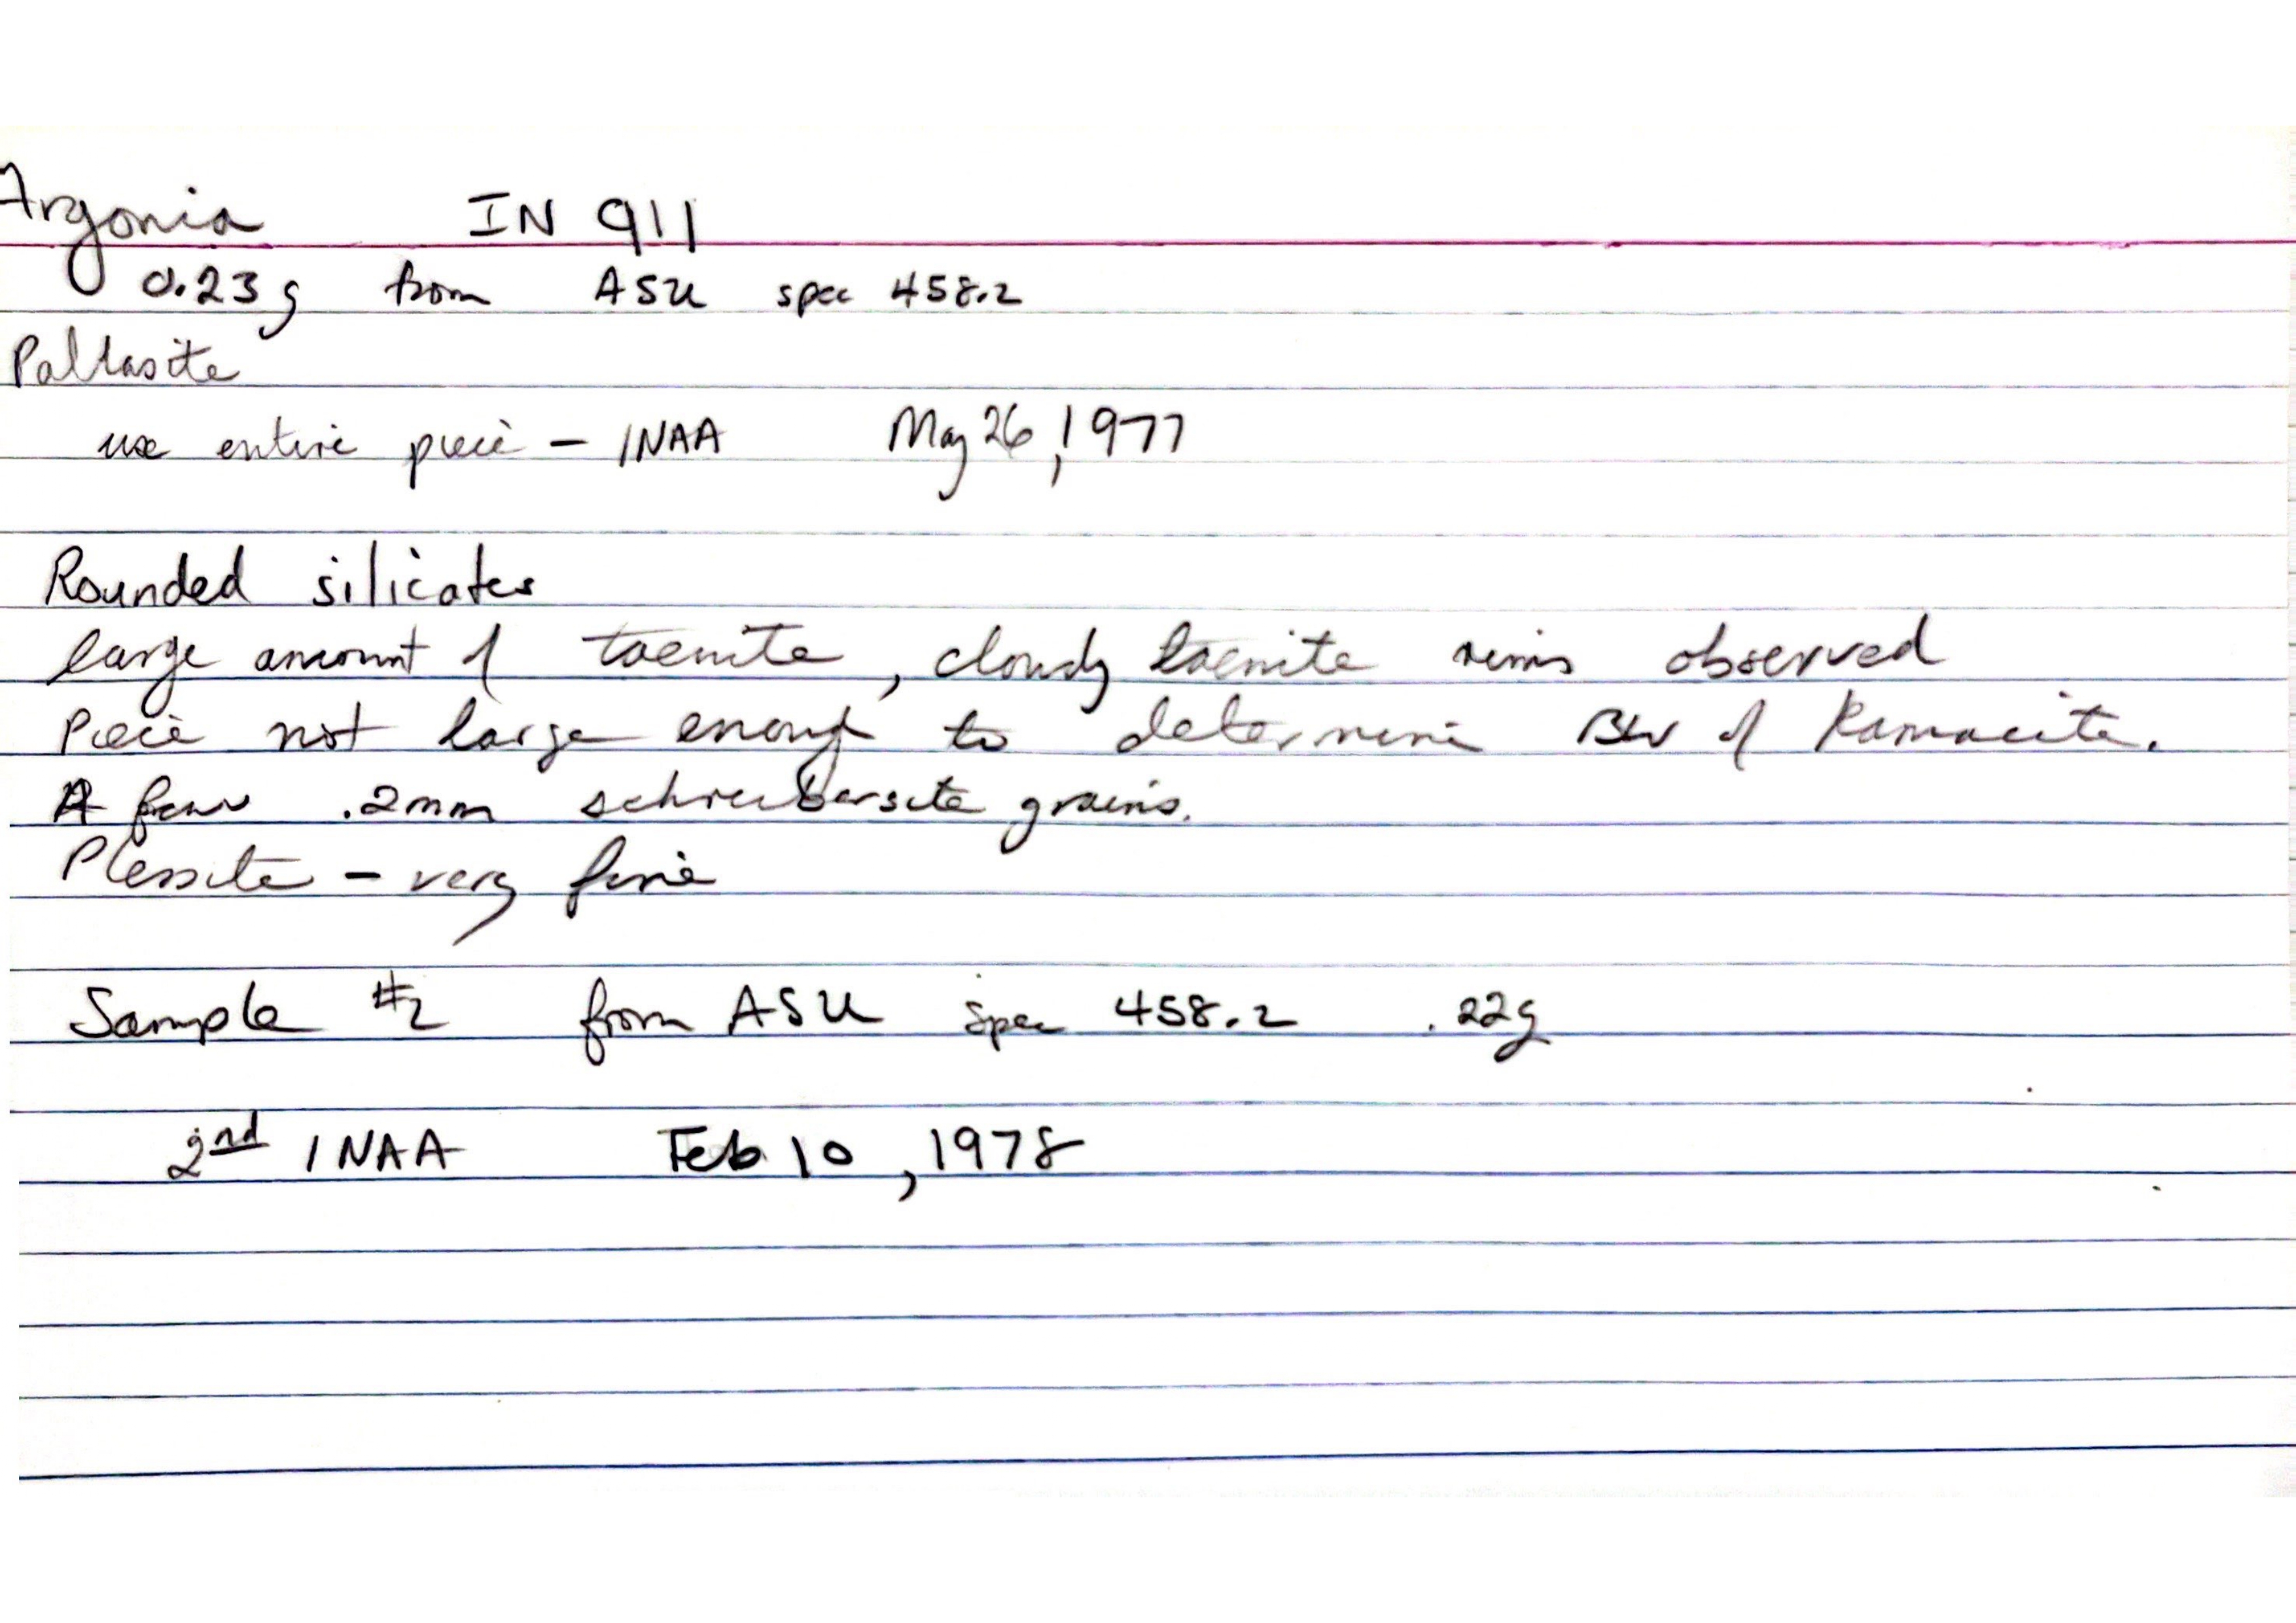 Argonia IN 911
0.23g from ASU spec 458.2
Pallasite
use entire piece – INAA May 26, 1977
Rounded silicates
large amount of taenite, cloudy taenite rims observed
Piece not large enough to determine BW of Kamacite.
A few .2mm schreibersite grains.
Plessite – very fine
Sample #2 from ASU spec 458.2 .22g
2nd INAA Feb 10, 1978